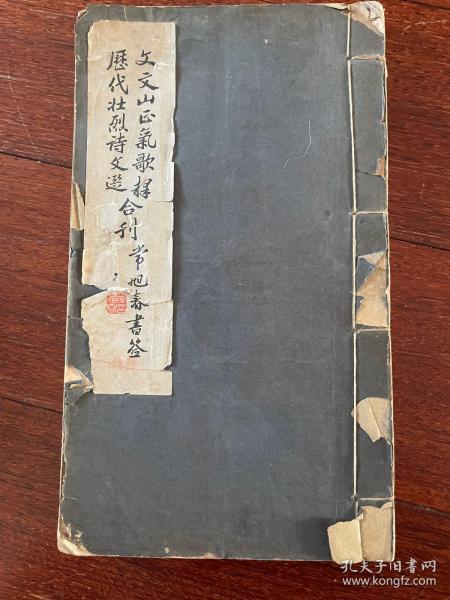 文文山正氣歌釋
歷代壯烈詩文選
合刊
常旭春書签
孔夫子旧书网
www.kongfz.com